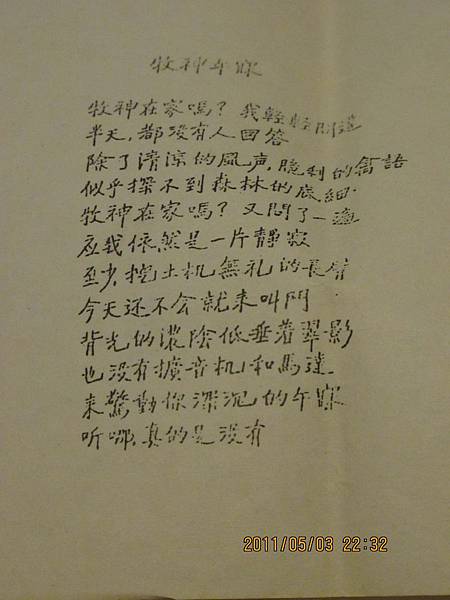 牧神午寐
牧神在家嗎？我輕輕問道
半天，都沒有人回答
除了清涼的風声，脆利的禽語
似乎探不到森林的底細
牧神在家嗎？又問了一遍
应我依然是一片靜寂
至少，挖土机無礼的長臂
今天还不会就来叫門
背光的濃陰低垂着翠影
也沒有擴音机和馬達
来驚動你深沉的午寐
听哪，真的是沒有
2011/05/03 22:32